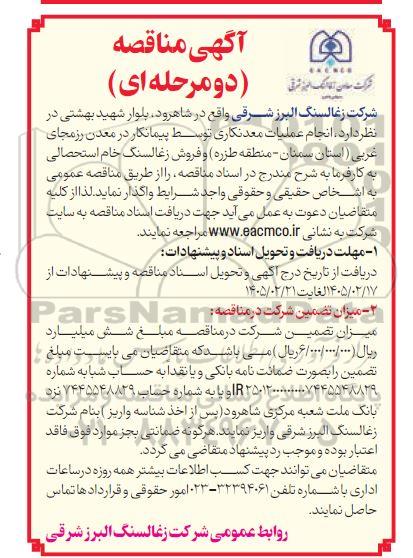 آگهی مناقصه
(دو مرحله ای)
EACMCO
شرکت معادن زغالسنگ البرز شرقی
شرکت زغالسنگ البرز شــرقی واقع در شاهرود، بلوار شهید بهشتی در
نظر دارد، انجام عملیات معدنکاری توسـط پیمانکار در معدن رزمجای
غربی (استان سمنان-منطقه طزره) و فروش زغالسنگ خام استحصالی
به کارفرما به شرح مندرج در اسناد مناقصه، را از طریق مناقصه عمومی
به اشـخاص حقیقی و حقوقی واجد شـرایط واگذار نماید.لذا از کلیه
متقاضیان دعوت به عمل می آید جهت دریافت اسناد مناقصه به سایت
شرکت به نشانی www.eacmco.ir مراجعه نمایند.
۱-مهلت دریافت و تحویل اسناد و پیشنهادات:
دریافت از تاریخ درج آگهی و تحویل اسـناد مناقصه و پیشـنهادات از
۱۴۰۵/۰۲/۱۷ لغایت ۱۴۰۵/۰۲/۲۱
۲-میزان تضمین شرکت در مناقصه:
میـزان تضمیـن شـرکت درمناقصـه مبلـغ شـش میلیـارد
ریال(۶/۰۰۰/۰۰۰/۰۰۰ریال) مـی باشـدکه متقاضیان می بایسـت مبلغ
تضمین را بصورت ضمانت نامه بانکی و یا نقدا به حساب شبا به شماره
IR۲۵۰۱۲۰۰۰۰۰۰۰۰۰۷۴۴۵۵۴۸۸۳۹ و یا به شماره حساب ۷۴۴۵۵۴۸۸۳۹ نزد
بانک ملت شعبه مرکزی شاهرود (پس از اخذ شناسه واریز ) بنام شرکت
زغالسنگ البرز شرقی واریز نمایند.هرگونه ضمانتی بجز موارد فوق فاقد
اعتبار بوده و موجب رد پیشنهاد متقاضی می گردد.
متقاضیان می توانند جهت کسـب اطلاعات بیشتر همه روزه درساعات
اداری با شـماره تلفن ۳۲۳۹۴۰۶۱-۰۲۳ امور حقوقی و قراردادها تماس
حاصل نمایند.
روابط عمومی شرکت زغالسنگ البرز شرقی